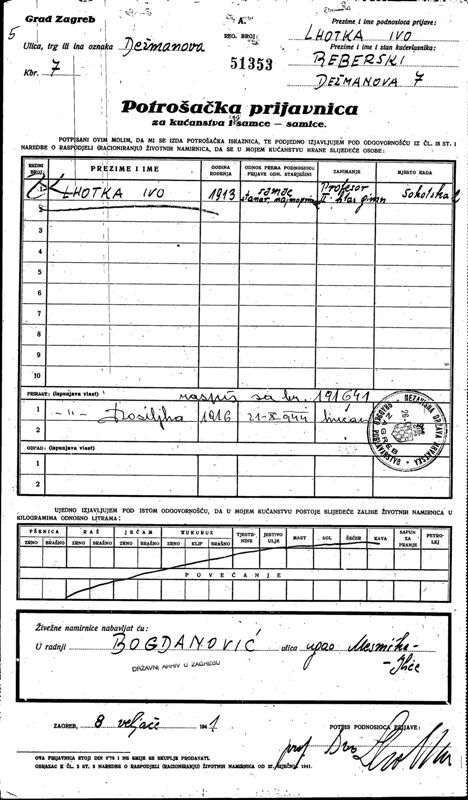 5
Grad Zagreb
Ulica, trg ili ina oznaka Dežmanova
Kbr. 7
A.
REG. BROJ:
51353
Prezime i ime podnosioca prijave:
LHOTKA IVO
Prezime i ime i stan kućevlasnika:
BEBERSKI
DEŽMANOVA 7
Potrošačka prijavnica
za kućanstva i samce — samice.
POTPISANI OVIM MOLIM, DA MI SE IZDA POTROŠAČKA ISKAZNICA, TE PODJEDNO IZJAVLJUJEM POD ODGOVORNOŠĆU IZ ČL. 18 ST. 1
NAREDBE O RASPODJELI (RACIONIRANJU) ŽIVOTNIH NAMIRNICA, DA SE U MOJEM KUĆANSTVU HRANE SLIJEDEĆE OSOBE:
REDNI BROJ PREZIME I IME GODINA ROĐENJA ODNOS PREMA PODNOSIOCU PRIJAVE ODN. STARJEŠINI ZANIMANJE MJESTO RADA
1 LHOTKA IVO 1913 samac profesor II. klas. gimn Sokolska
2
3
4
5
6
7
8
9
10
PRIRAST: (ispunjava vlast) 191641
1 -"- 1916 21-X-944
2
NEZAVISNA DRŽAVA HRVATSKA
ZAGREB
OTPAD: (ispunjava vlast)
1
2
UJEDNO IZJAVLJUJEM POD ISTOM ODGOVORNOŠĆU, DA U MOJEM KUĆANSTVU POSTOJE SLIJEDEĆE ZALIHE ŽIVOTNIH NAMIRNICA U
KILOGRAMIMA ODNOSNO LITRAMA:
PŠENICA RAŽ JEČAM KUKURUZ TJESTENINE JESTIVO ULJE MAST SOL ŠEĆER KAVA SAPUN ZA PRANJE PETROLEJ
ZRNO BRAŠNO ZRNO BRAŠNO ZRNO BRAŠNO ZRNO KLIP BRAŠNO
POVEĆANJE
Živežne namirnice nabavljat ću:
U radnji BOGDANOVIĆ ulica ugao Mesničke-
-Ilice
DRŽAVNI ARHIV U ZAGREBU
ZAGREB, 8 veljače 1941
POTPIS PODNOSIOCA PRIJAVE:
prof
OVA PRIJAVNICA STOJI DIN 0·75 I NE SMIJE SE SKUPLJE PRODAVATI.